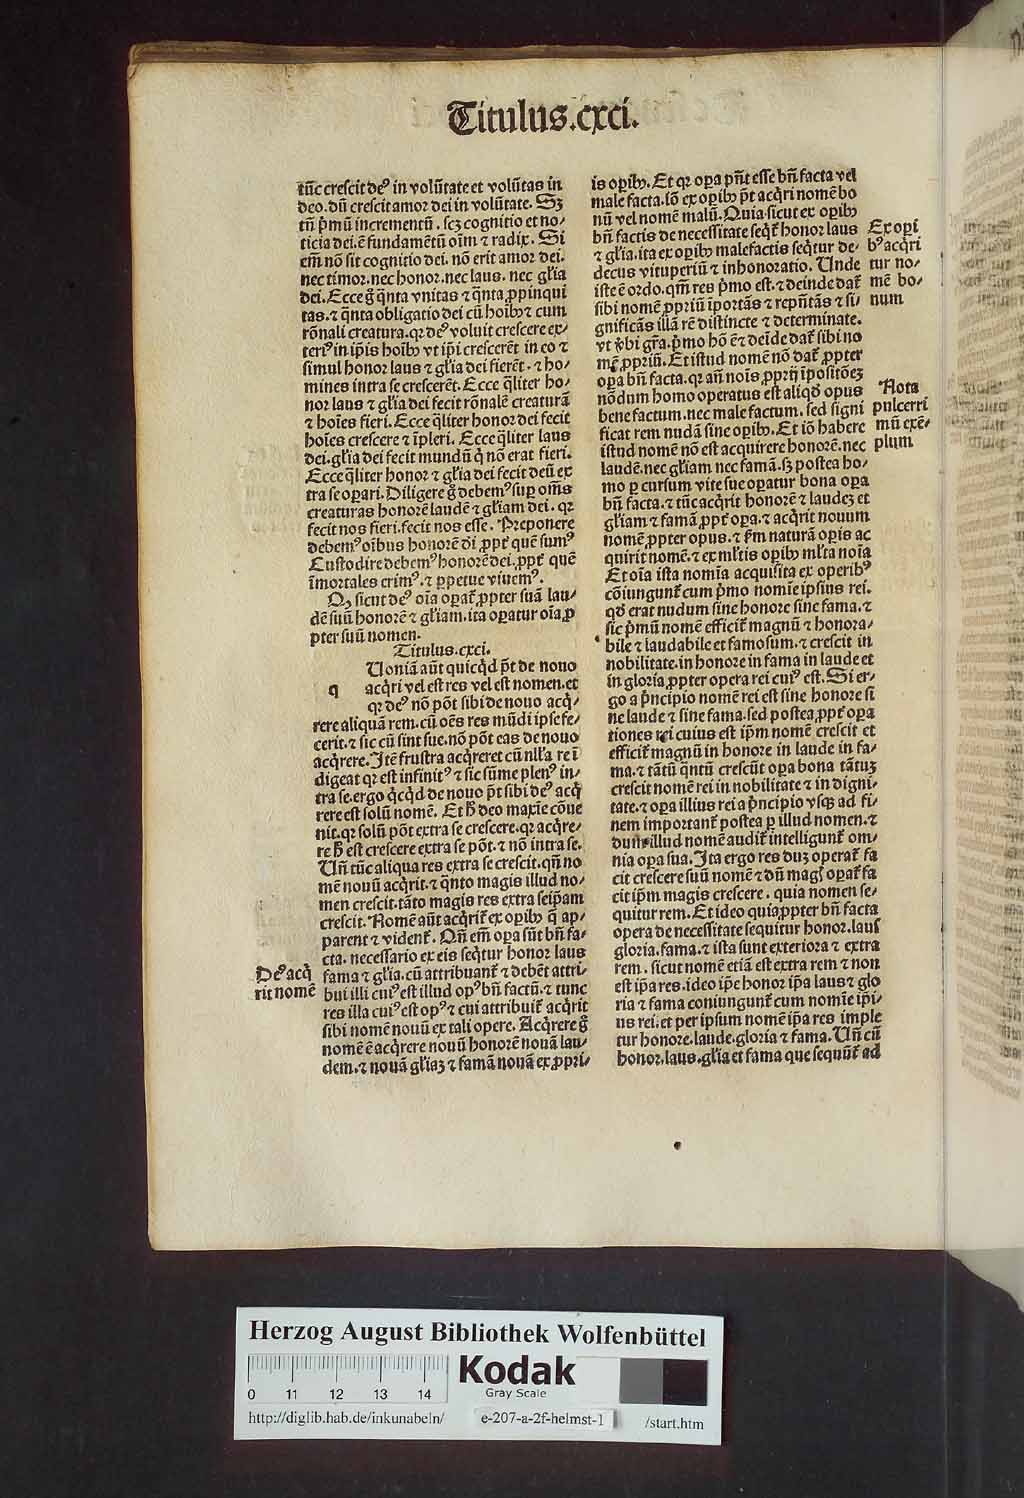 Titulus.cxci.
tūc crescit deꝰ in volūtate et volūtas in
deo.dū crescit amor dei in volūtate. Sꝫ
tn̄ pͥmū incrementū . scꝫ cognitio et no/
ticia dei.ē fundamētū oīm ⁊ radix. Si
em̄ nō sit cognitio dei. nō erit amor dei.
nec timor.nec honor.nec laus. nec gl̄ia
dei. Ecce gͦ qͥnta vnitas ⁊ qͥnta ꝓpinqui
tas.⁊ qͥnta obligatio dei cū hoībꝫ ⁊ cum
rōnali creatura.qꝛ deꝰ voluit crescere ex/
teriꝰ in ip̄is hoībꝫ vt ip̄i crescerēt in eo ⁊
simul honor laus ⁊ gl̄ia dei fierēt.⁊ ho/
mines intra se crescerēt. Ecce qͣliter ho/
nor laus ⁊ gl̄ia dei fecit rōnalē creaturā
⁊ hoīes fieri. Ecce qͣliter honor dei fecit
hoīes crescere ⁊ īpleri. Ecce qͣliter laus
dei.gl̄ia dei fecit mundū qͥ nō erat fieri.
Ecce qͣliter honor ⁊ gl̄ia dei fecit deū ex
tra se oꝑari. Diligere gͦ debemꝰ suꝑ om̄s
creaturas honorē laudē ⁊ gl̄iam dei. qꝛ
fecit nos fieri.fecit nos esse. Preponere
debemꝰ oībus honorē dī ꝓpt̄ quē sumꝰ
Custodire debemꝰ honorē dei.ꝓpt̄ quē
īmortales erimꝰ.⁊ ꝑpetue viuemꝰ.
Qꝙ sicut deꝰ oīa oꝑat̄ ꝓpter suā lau/
dē suū honorē ⁊ gl̄iam.ita oꝑatur oīa ꝓ
pter suū nomen.
Titulus.cxci.
q Uoniā aūt quicqͥd pōt de nouo
acqͥri vel est res vel est nomen.et
qꝛ deꝰ nō pōt sibi de nouo acqͥ/
rere aliquā rem.cū oēs res mūdi ipse fe/
cerit.⁊ sic cū sint sue.nō pōt eas de nouo
acqͥrere. Itē frustra acqͥreret cū nll̄a re ī
digeat qꝛ est infinitꝰ ⁊ sic sūme plenꝰ in/
tra se.ergo qͥcqͥd de nouo pōt sibi deꝰ acqͥ
rere est solū nomē. Et hͦ deo maxīe cōue
nit.qꝛ solū pōt extra se crescere.qꝛ acqͥre/
re hͦ est crescere extra se pōt.⁊ nō intra se.
Un̄ tūc aliqua res extra se crescit.qn̄ no
mē nouū acqͥrit.⁊ qͣnto magis illud no/
men crescit.tāto magis res extra seip̄am
crescit. Nomē aūt acqͥrit̄ ex oꝑibꝫ q̄ ap/
parent ⁊ vident̄. Qn̄ em̄ oꝑa sūt bn̄ fa/
cta. necessario ex eis seqͥtur honor laus
fama ⁊ gl̄ia.cū attribuant̄ ⁊ debēt attri/
bui illi cuiꝰ est illud opꝰ bn̄ factū.⁊ tunc
res illa cuiꝰ est opꝰ ⁊ cui attribuit̄ acqͥrit
sibi nomē nouū ex tali opere. Acqͥrere gͦ
nomē ē acqͥrere nouū honorē nouā lau/
dem.⁊ nouā gl̄iaꝫ ⁊ famā nouā ex ꝓpri/
Deꝰ acqͥ
rit nomē
is oꝑibꝫ. Et qꝛ oꝑa pn̄t esse bn̄ facta vel
male facta.iō ex oꝑibꝫ pōt acqͥri nomē bo
nū vel nomē malū. Quia sicut ex oꝑibꝫ
bn̄ factis de necessitate seqͥt̄ honor laus
⁊ gl̄ia.ita ex oꝑibꝫ malefactis seqͥtur de/
decus vituperiū ⁊ inhonoratio. Unde
iste ē ordo.qm̄ res pͥmo est.⁊ deinde dat̄
sibi nomē ꝓpriū īportās ⁊ repn̄tās ⁊ si/
gnificās illā rē distincte ⁊ determinate.
vt vͤbi gr̄a.pͥmo hō ē ⁊ deīde dat̄ sibi no
mē ꝓpriū. Et istud nomē nō dat̄ ꝓpter
oꝑa bn̄ facta.qꝛ an̄ noīs ꝓprij īpositōeꝫ
nōdum homo operatus est aliqd̄ opus
bene factum.nec male factum. sed signi
ficat rem nudā sine oꝑibꝫ. Et iō habere
istud nomē nō est acquirere honorē.nec
laudē.nec gl̄iam nec famā.sꝫ postea ho/
mo ꝑ cursum vite sue oꝑatur bona oꝑa
bn̄ facta.⁊ tūc acqͥrit honorē ⁊ laudeꝫ et
gl̄iam ⁊ famā ꝓpt̄ oꝑa.⁊ acqͥrit nouum
nomē ꝓpter opus.⁊ ẜm naturā oꝑis ac
quirit nomē.⁊ ex ml̄tis oꝑibꝫ ml̄ta noīa
Et oīa ista nomīa acquisita ex operibꝰ
cōiungunt̄ cum pͥmo nomīe ipsius rei.
qd̄ erat nudum sine honore sine fama.⁊
sic pͥmū nomē efficit̄ magnū ⁊ honora/
bile ⁊ laudabile et famosum.⁊ crescit in
nobilitate.in honore in fama in laude et
in gloria ꝓpter opera rei cuiꝰ est. Si er/
go a pͥncipio nomē rei est sine honore si
ne laude ⁊ sine fama.sed postea ꝓpt̄ oꝑa
tiones rei cuius est ip̄m nomē crescit et
efficit̄ magnū in honore in laude in fa/
ma.⁊ tātū qͣntū crescūt oꝑa bona tātuꝫ
crescit nomē rei in nobilitate ⁊ in digni/
tate.⁊ oꝑa illius rei a pͥncipio vsqꝫ ad fi/
nem important̄ postea ꝑ illud nomen.⁊
dum illud nomē audit̄ intelligunt̄ om/
nia oꝑa sua. Ita ergo res duꝫ operat̄ fa
cit crescere suū nomē ⁊ dū magꝭ oꝑat̄ fa
cit ip̄m magis crescere . quia nomen se/
quitur rem. Et ideo quia ꝓpter bn̄ facta
opera de necessitate sequitur honor.laus
gloria.fama.⁊ ista sunt exteriora ⁊ extra
rem. sicut nomē etiā est extra rem ⁊ non
est ip̄a res.ideo ip̄e honor ip̄a laus ⁊ glo
ria ⁊ fama coniungunt̄ cum nomīe ip̄i/
us rei.et per ipsum nomē ip̄a res imple
tur honore.laude.gloria ⁊ fama. Un̄ cū
honor.laus.gl̄ia et fama que sequūt̄ ad
Ex oꝑi
bꝰ acqͥri
tur no/
mē bo/
num
Nota
pulcerri
mū exē/
plum
Herzog August Bibliothek Wolfenbüttel
0 11 12 13 14
Kodak
Gray Scale
http://diglib.hab.de/inkunabeln/ e-207-a-2f-helmst-1 /start.htm